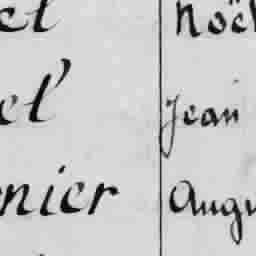 el Noël
el' Jean
nier Augu